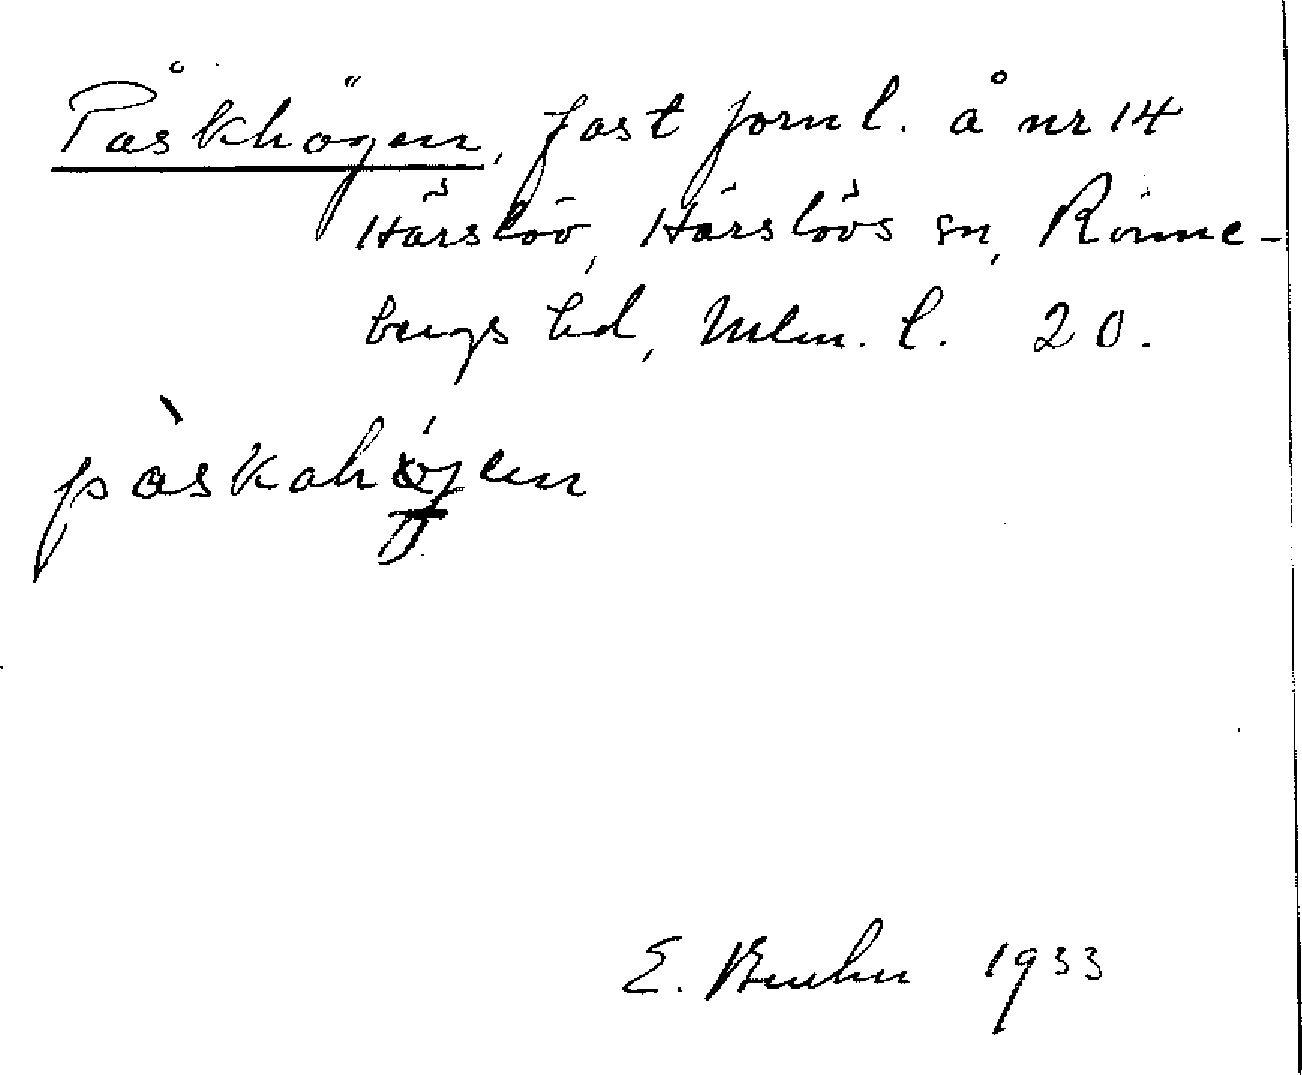 Påskhögen, fast fornl. å nr 14
Härslöv, Härslövs sn, Rönne-
bergs hd, Mlm. l. 20.
påskahøjen
E. Bruhn 1933